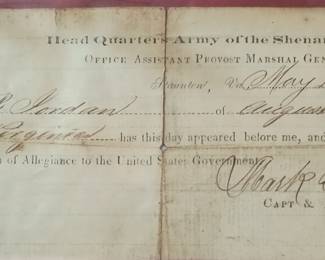 Head Quarters Army of the Shenan
Office Assistant Provost Marshal Gen
Staunton, Va. May
Jordan of Augus
Virginia has this day appeared before me, and
of Allegiance to the United States Government.
Mark
Capt &